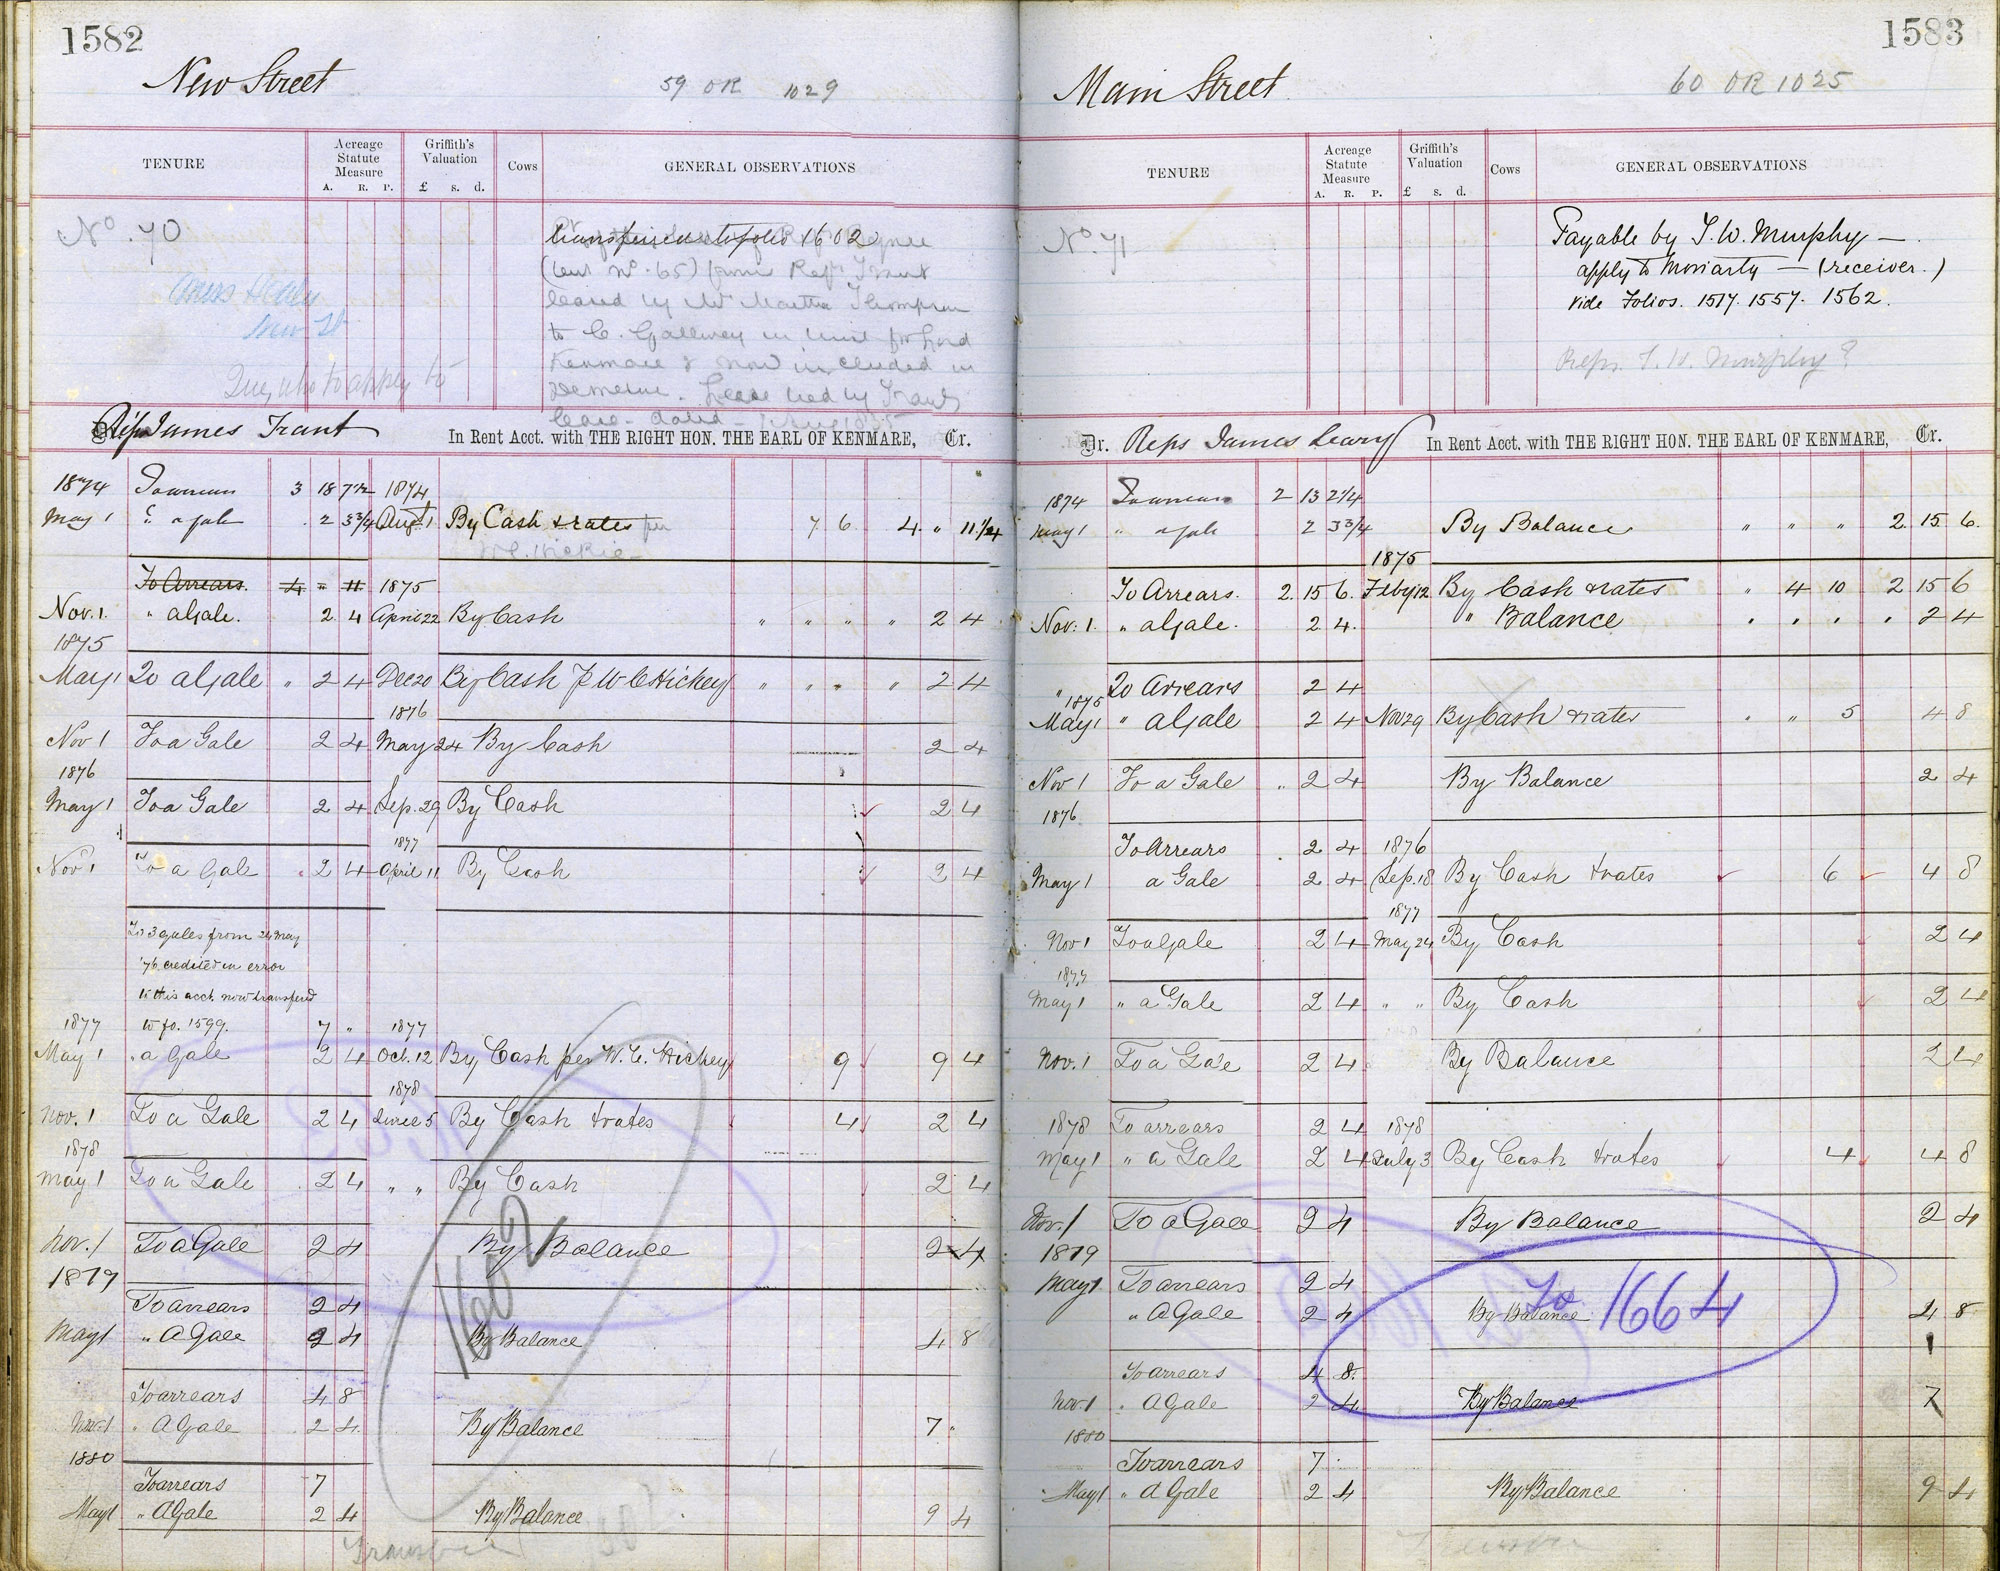 1582
New Street
59 OR 1029
TENURE
Acreage Statute Measure
A. R. P.
Griffith's Valuation
£ s. d.
Cows
GENERAL OBSERVATIONS
No. 70
transferred to folio 1602
(Lent No. 65) from Reps Trant
leased by Mr Martha Thompson
to C. Gallwey in trust for Lord
Kenmare & now included in
Demesne. Lease held by Trant
Lease dated
New St
Query who to apply to
Reps James Trant In Rent Acct. with THE RIGHT HON. THE EARL OF KENMARE, Cr.
1874 3 18 7 1/2 1874
May 1 " a gale . 2 3 3/4 Augt 1 By Cash & rates per 7 6 4 " 11 1/4
W.C. Hickie
To Arrears. 4 " 11 1875
Nov. 1. " a Gale. 2 4 April 22 By Cash " " " " 2 4
1875
May 1 To a Gale " 2 4 Dec 20 By Cash p W C Hickey " " " " 2 4
1876
Nov 1 To a Gale 2 4 May 24 By Cash 2 4
1876
May 1 To a Gale 2 4 Sep. 29 By Cash 2 4
1877
Nov 1 To a Gale 2 4 April 11 By Cash 2 4
To 3 gales from 24 May
'76 credited in error
to this acct. now transfered
1877 to fo. 1599. 7 " 1877
May 1 . a Gale 2 4 Oct. 12 By Cash per W. C. Hickey 9 9 4
1878
Nov. 1 To a Gale 2 4 June 5 By Cash & rates 4 2 4
1878
May 1 To a Gale 2 4 " " By Cash 2 4
Nov. 1 To a Gale 2 4 By Balance 2 4
1879
To arrears 2 4
May 1 " A Gale 2 4 By Balance 4 8
1602
To arrears 4 8
Nov. 1 " A Gale 2 4 By Balance 7 "
1880
To arrears 7
May 1 " A Gale 2 4 By Balance 9 4
1583
Main Street
60 OR 1025
TENURE
Acreage Statute Measure
A. R. P.
Griffith's Valuation
£ s. d.
Cows
GENERAL OBSERVATIONS
No. 71
Payable by T. W. Murphy —
apply to Moriarty — (receiver.)
vide Folios. 1517. 1557. 1562.
Reps. T. W. Murphy?
Dr. Reps James Leary In Rent Acct. with THE RIGHT HON. THE EARL OF KENMARE, Cr.
1874 2 13 2 1/4
May 1 " a gale 2 3 3/4 By Balance " " " 2. 15 6.
1875
To Arrears. 2. 15 6. Feby 12 By Cash & rates " 4 10 2 15 6
Nov. 1. " a Gale. 2 4. " Balance . . . . 2 4
" To Arrears 2 4
1875
May 1 " a Gale 2 4 Nov 29 By Cash & rates " " 5 4 8
Nov 1 To a Gale " 2 4 By Balance 2 4
1876
To Arrears . 2 4 1876
May 1 a Gale 2 4 Sep. 18 By Cash & rates 6 4 8
1877
Nov 1 To a Gale 2 4 May 24 By Cash 2 4
1877
May 1 " a Gale 2 4 " " By Cash 2 4
Nov. 1 To a Gale 2 4 By Balance 2 4
1878 To arrears 2 4 1878
May 1 " a Gale 2 4 July 3 By Cash & rates 4 4 8
Nov. 1 To a Gale 2 4 By Balance 2 4
1879
May 1 To arrears 2 4
" A Gale 2 4 By Balance 4 8
To 1664
To arrears 4 8.
Nov 1 . A Gale 2 4 By Balance 7
1880
To arrears 7 .
May 1 " A Gale 2 4 By Balance 9 4